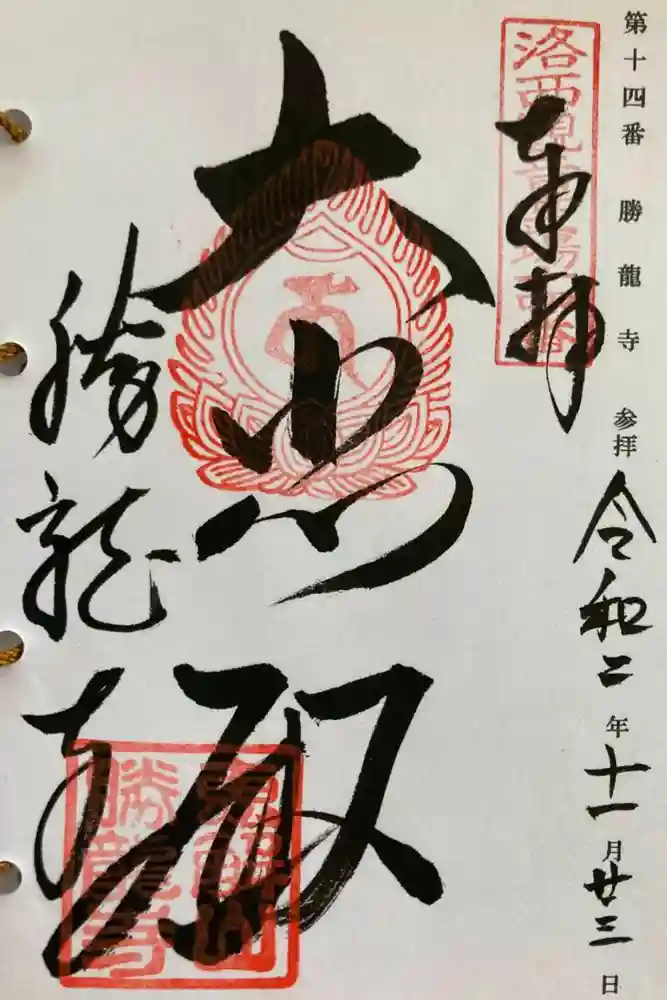 第十四番 勝龍寺 参拝 令和二年十一月廿三日
洛西観音霊場
奉拝
大悲殿
勝龍寺
恵解山
勝龍寺